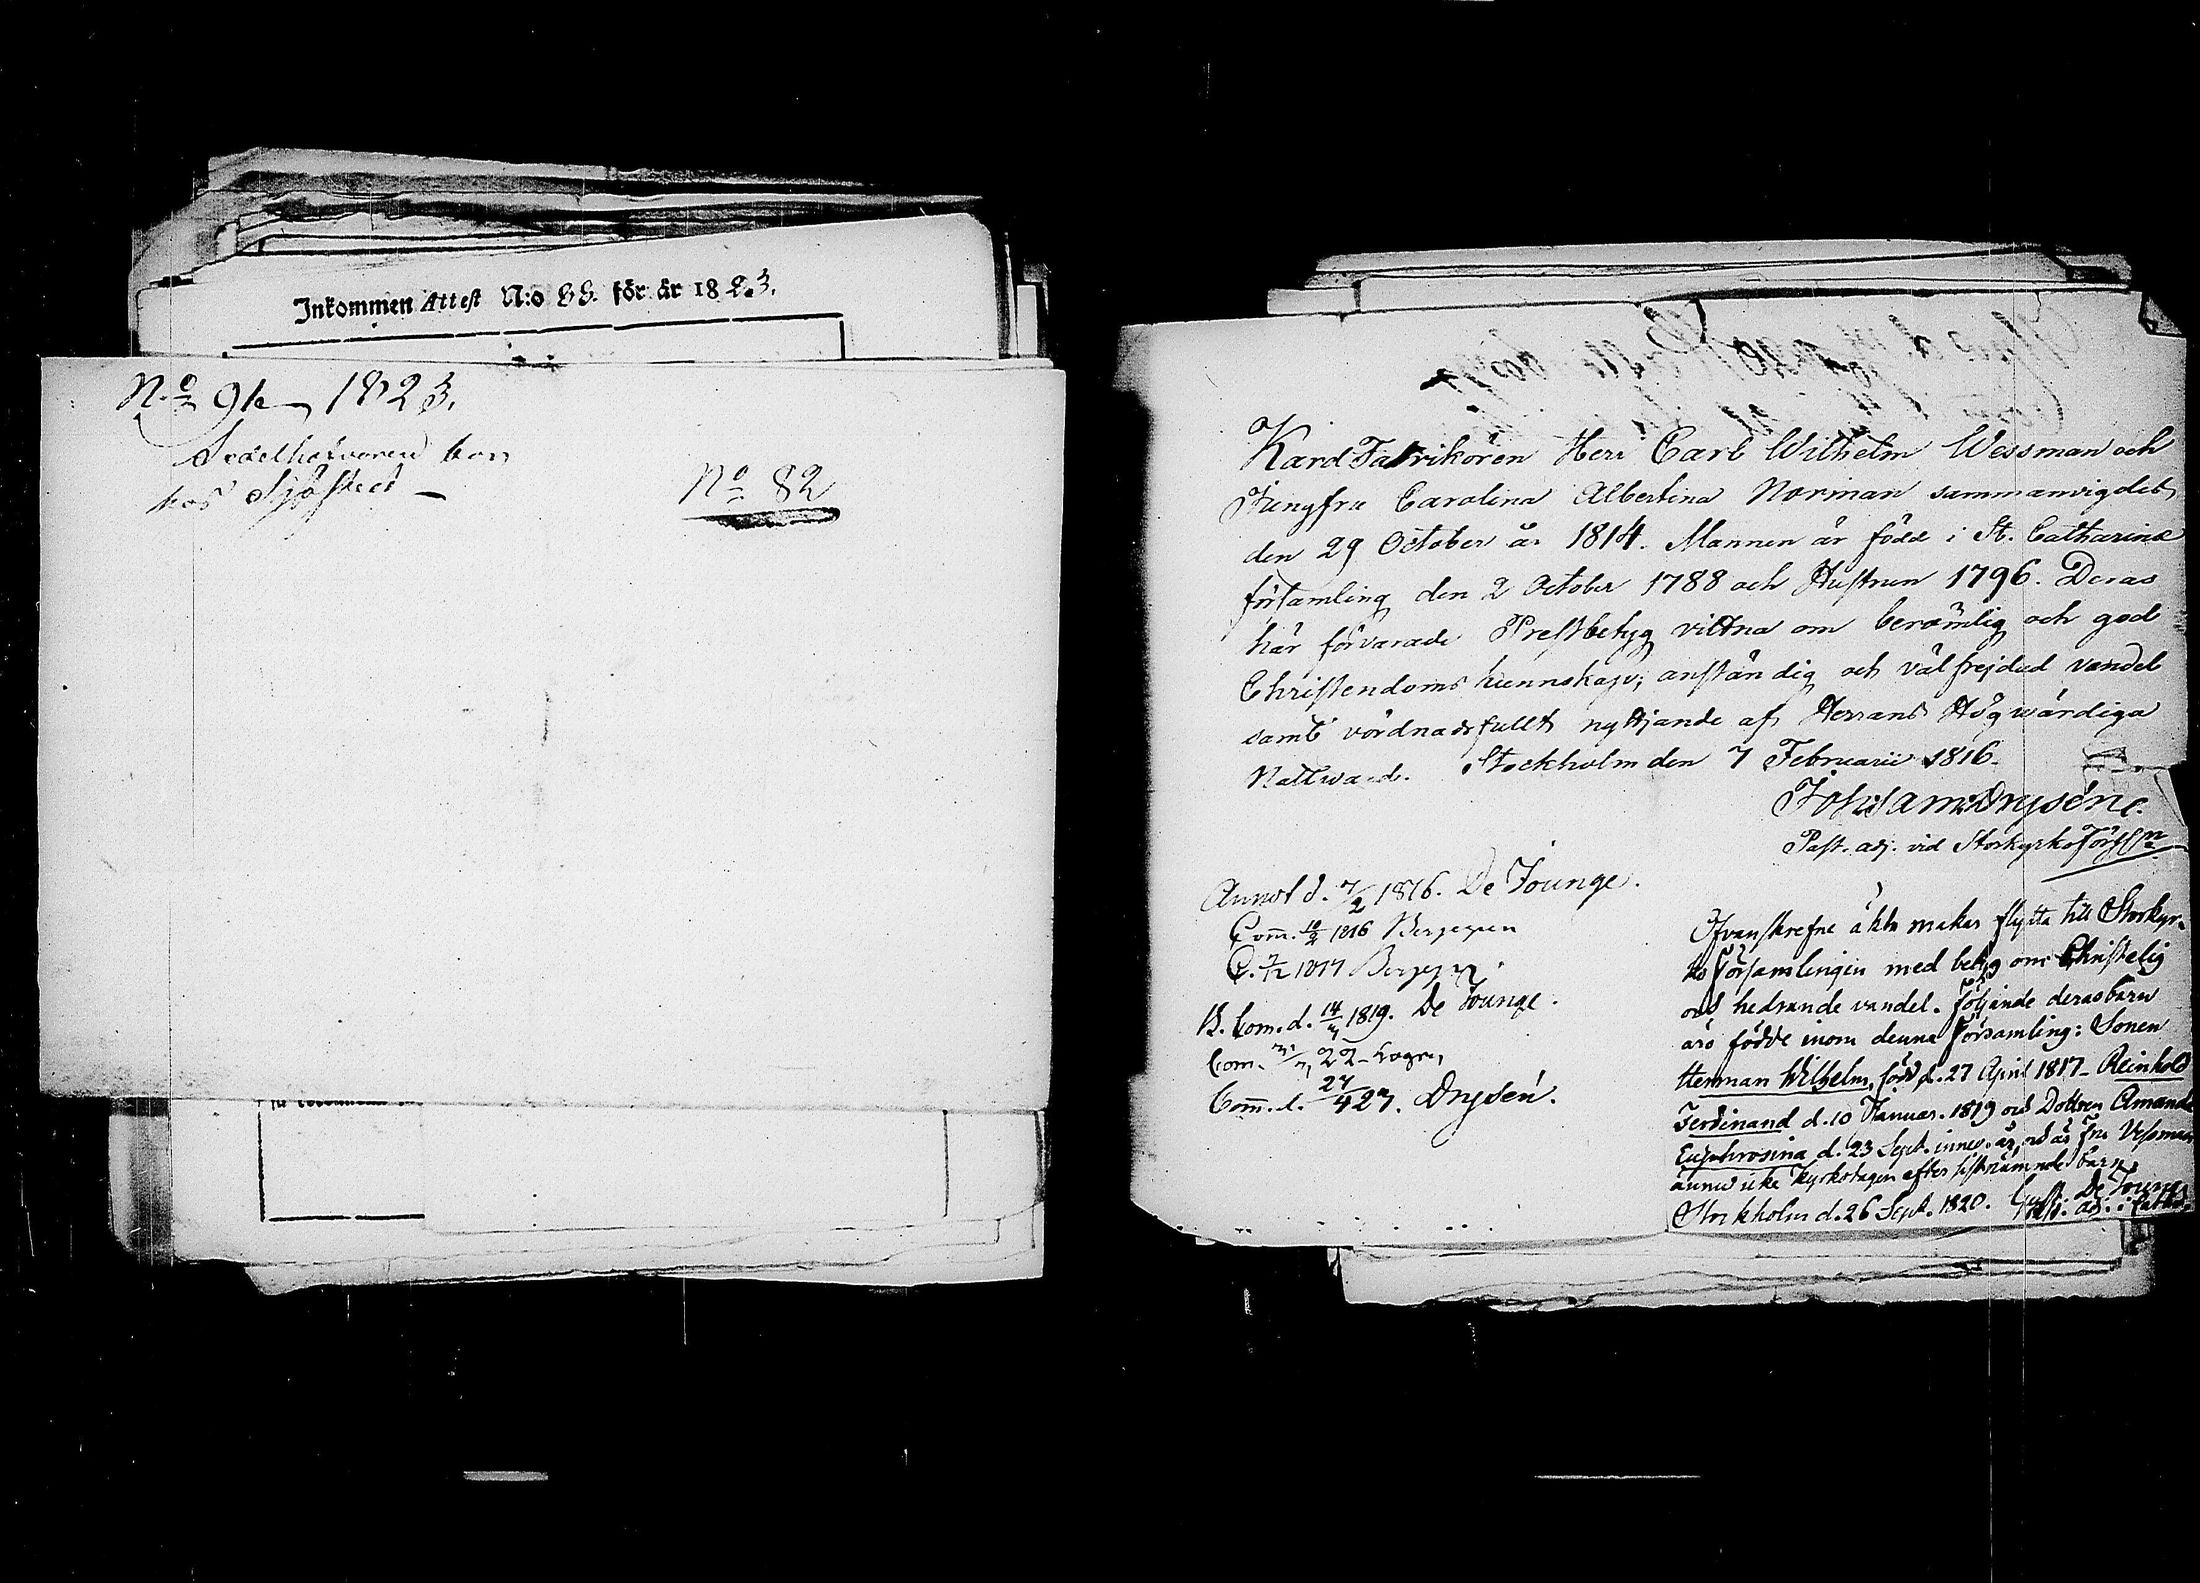 Inkommen Attest N:o 88. för år 1823.
No 91 1823.
hos Sjöstedt
No 82
Kard Fabrikören Herr Carl Wilhelm Wessman och
Jungfru Carolina Albertina Norman sammanvigdes
den 29 October år 1814. Mannen är född i St. Catharinæ
församling den 2 October 1788 och Hustrun 1796. Deras
här förvarade Prestbetyg vittna om berömlig och god
Christendoms kunnskap; anständig och välfrejdad vandel
samt vördnadsfullt nyttjande af Herrans Högwärdiga
Nattward. Stockholm den 7 Februarii 1816.
Joh: Sam: Drysén.
Past. adj. vid Storkyrko Förs:n
Annot d. 7/2 1816. De Jounge.
Com̄. 10/2 1816 Berggren
C. 7/12 1817 Berggren
B. Com. d. 14/3 1819. De Jounge.
Com. 22
Com̄. d. 27/4 23. Drysén.
Ofvanskrefne äkta makar flytta till Storkyr-
ko församlingen med betyg om Christelig
och hedrande vandel. Följande deras barn
äro födde inom denna församling: Sonen
Herman Wilhelm, född d. 27 April 1817 - Reinhold
Ferdinand d. 10 Januar. 1819 och Dottren Amanda
Euphrosina d. 23 Sept. innev. år, och är Fru Wessman
ännu icke kyrkotagen efter sistnämnde barn.
Stockholm d. 26 Sept. 1820. Gust. De Jounge
Past. adj. i Cath.